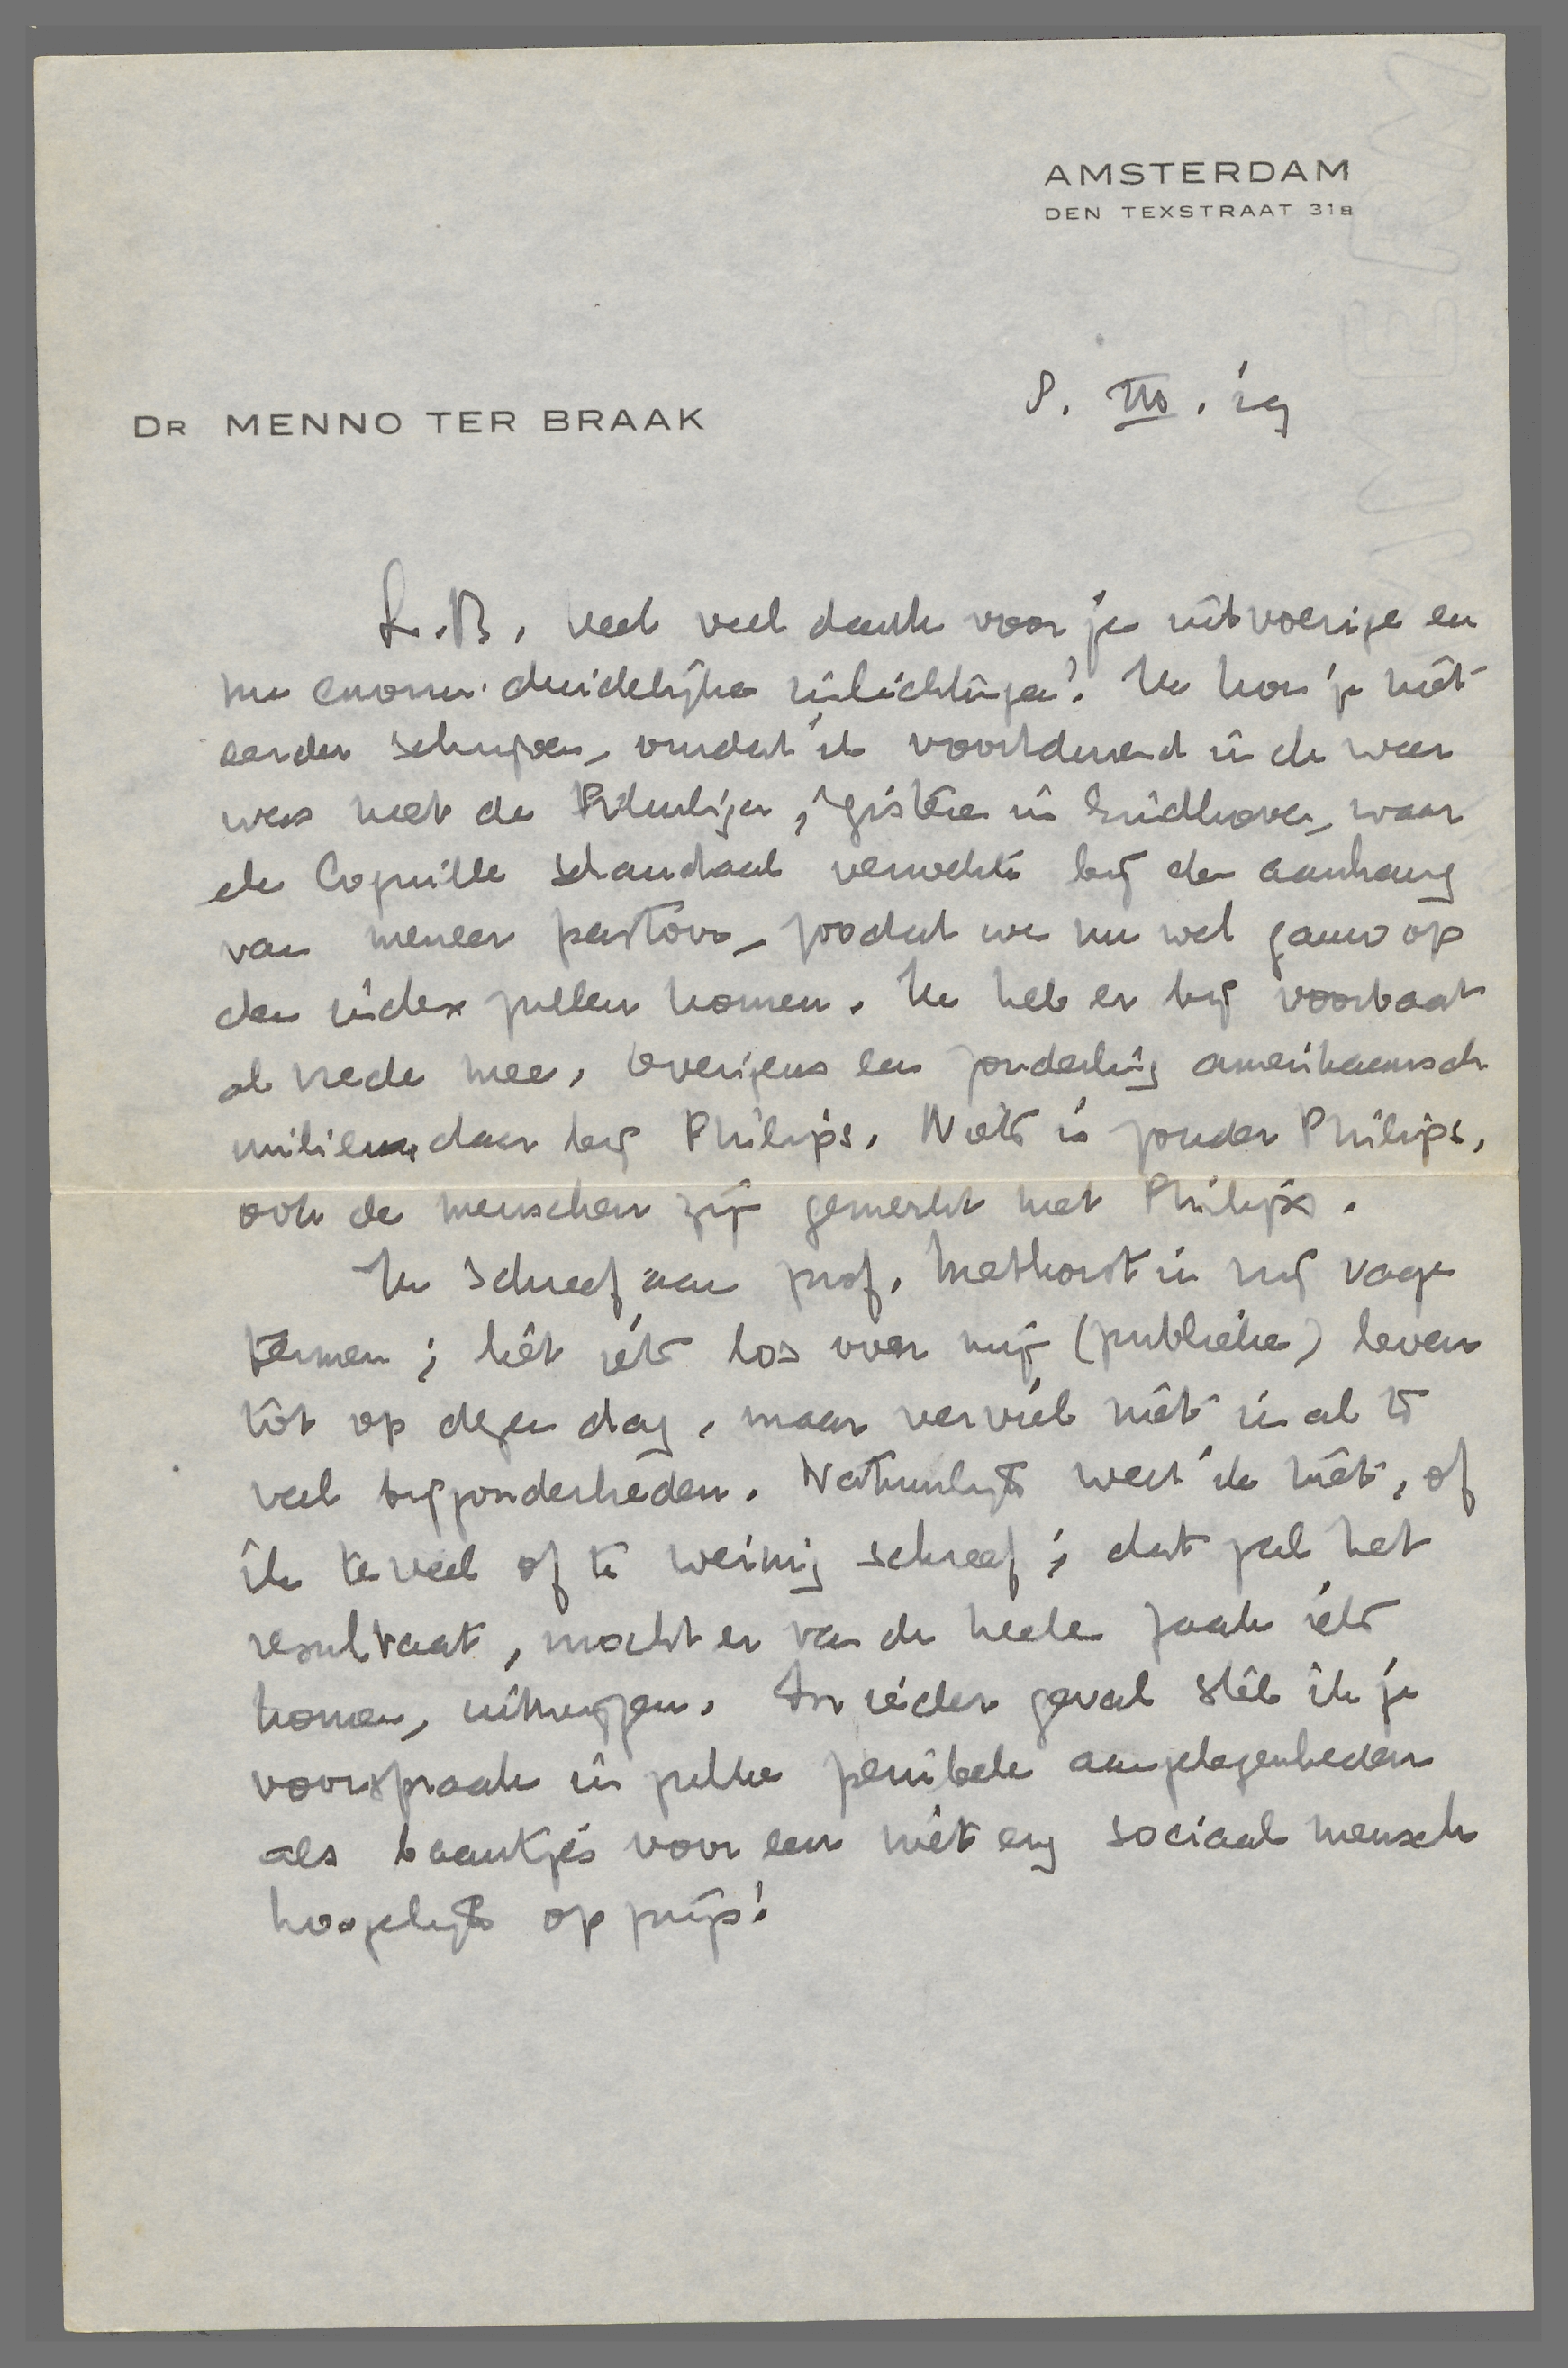 AMSTERDAM
DEN TEXSTRAAT 31B
DR MENNO TER BRAAK
8. III. 29
L.B. veel veel dank voor je uitvoerige en
me enorm duidelijke inlichtingen! Ik kon je niet
eerder schrijven, omdat ik voortdurend in de weer
was met de Filmliga, gisteren in Eindhoven, waar
de Coquille schandaal verwekte bij den aanhang
van meneer pastoor, zoodat we nu wel gauw op
den index zullen komen. Ik heb er bij voorbaat
al vrede mee. Overigens een zonderling amerikaansch
milieu daar bij Philips. Niets is zonder Philips,
ook de menschen zijn gemerkt met Philips.
Ik schreef aan prof. Methorst in vrij vage
termen; liet iets los over mijn (publieke) leven
tot op dezen dag, maar verviel niet in al te
veel bijzonderheden. Natuurlijk weet ik niet, of
ik te veel of te weinig schreef; dat zal het
resultaat, mocht er van de heele zaak iets
komen, uitwijzen. In ieder geval stel ik je
voorspraak in zulke penibele aangelegenheden
als baantjes voor een niet erg sociaal mensch
hoogelijk op prijs!